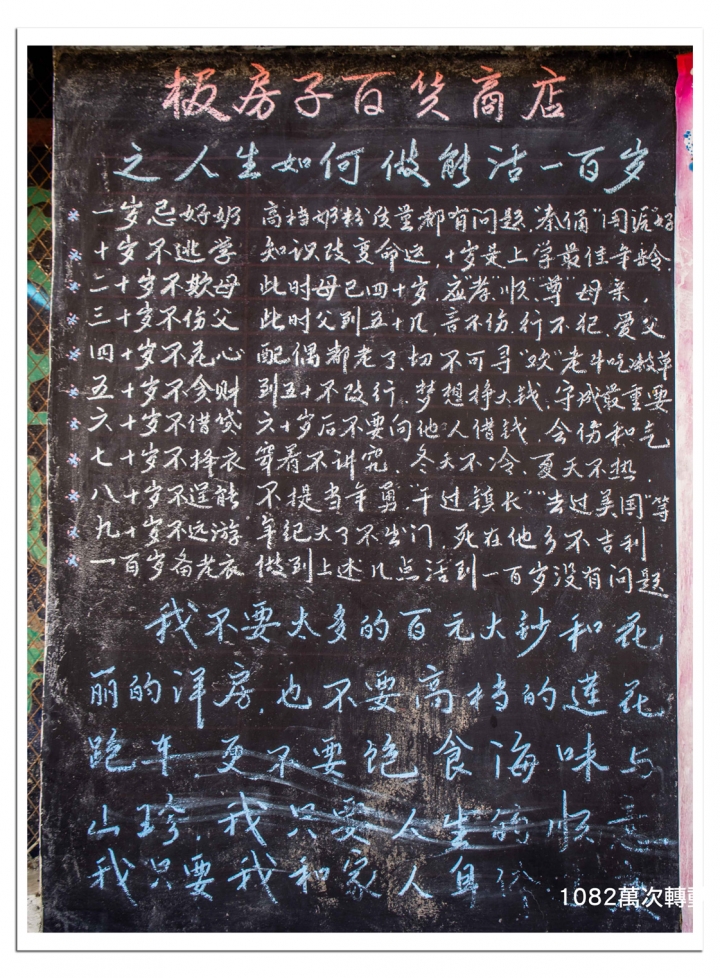 板房子百货商店
之人生如何做能活一百岁
* 一岁忌好奶 高档奶粉质量都有问题."秦俑""闰泥"好
* 十岁不逃学 知识改变命运,十岁是上学最佳年龄.
* 二十岁不欺母 此时母已四十岁.应孝"顺"尊母亲.
* 三十岁不伤父 此时父到五十几.言不伤.行不犯.爱父
* 四十岁不花心 配偶都老了.切不可寻"欢"老牛吃嫩草
* 五十岁不贪财 到五十不改行.梦想挣大钱.守成最重要
* 六十岁不借贷 六十岁后不要向他人借钱.会伤和气
* 七十岁不择衣 穿着不讲究.冬天不冷.夏天不热.
* 八十岁不逞能 不提当年勇."干过镇长""去过美国"等
* 九十岁不远游 年纪大了不出门.死在他乡不吉利
* 一百岁备老衣 做到上述几点活到一百岁没有问题
我不要太多的百元大钞和花
丽的洋房.也不要高档的莲花
跑车 更不要饱食海味与
山珍.我只要人生的顺意
我只要我和家人身
1082萬次轉動